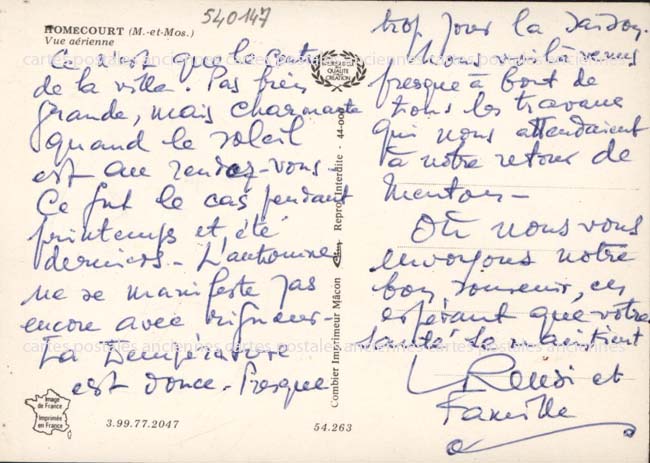 540147
HOMECOURT (M.-et-Mos.)
Vue aérienne
Ce n'est que le côté
de la ville. Pas bien
grande, mais charmante
quand le soleil
est au rendez-vous -
Ce fut le cas pendant
printemps et été
derniers - L'automne
ne se manifeste pas
encore avec rigueur -
La température
est douce - Presque
Image
de France
Imprimée
en France
3.99.77.2047
54.263
QUALITÉ
CRÉATION
Combier Imprimeur Mâcon
Reproº Interdite - 44-00
trop pour la saison.
Nous voilà venus
presque à bout de
tous les travaux
qui nous attendaient
à notre retour de
Menton -
nous vous
envoyons notre
bon souvenir, en
espérant que votre
santé se maintient
et
Famille
cartes postales anciennes cartes postales anciennes cartes postales anciennes
cartes postales anciennes cartes postales anciennes cartes postales anciennes